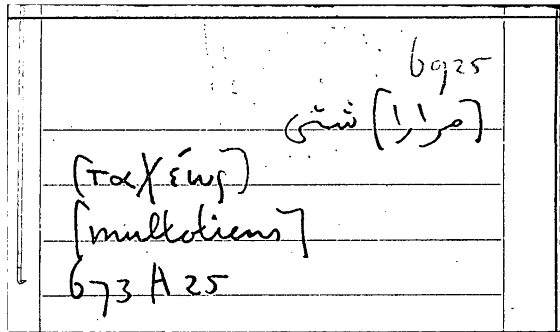 6925
[مرارا] شتى
[ταχέως]
[multotiens]
673 A 25